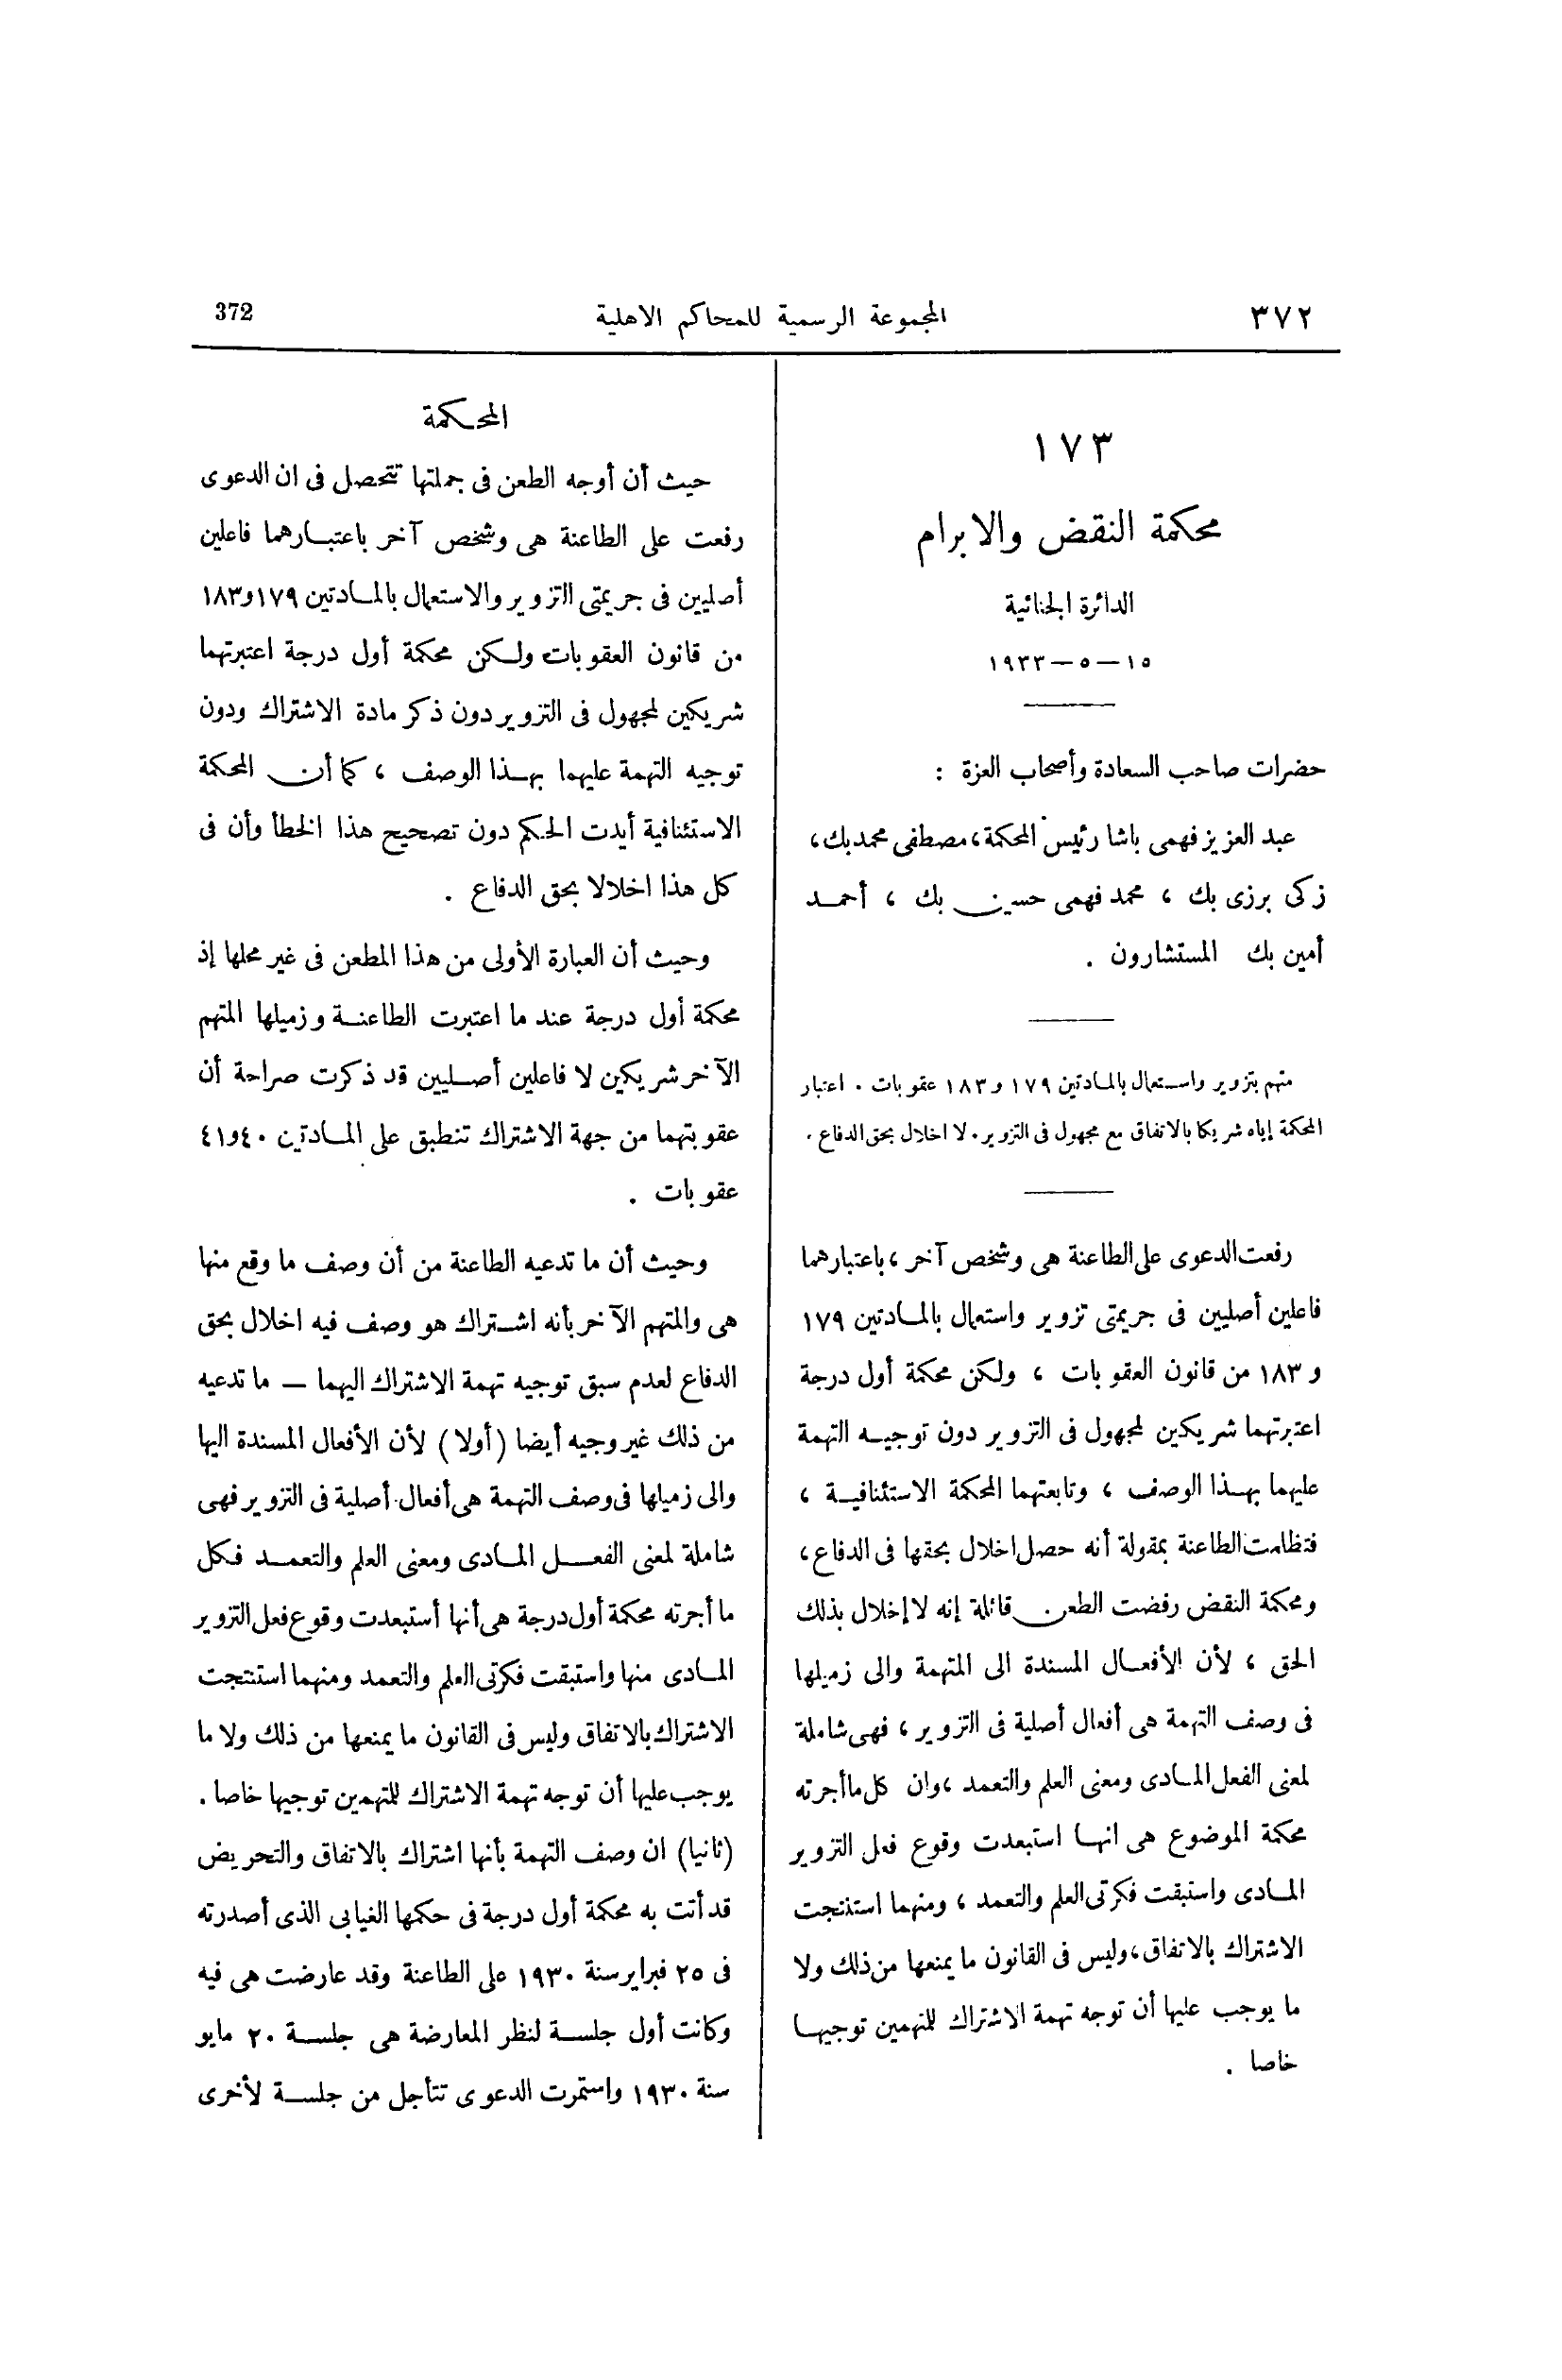 ٣٧٢ المجموعة الرسمية للمحاكم الاهلية 372
١٧٣
محكمة النقض والابرام
الدائرة الجنائية
١٥ — ٥ — ١٩٣٣
حضرات صاحب السعادة وأصحاب العزة :
عبد العزيز فهمى باشا رئيس المحكمة، مصطفى محمد بك،
زكى برزى بك ، محمد فهمى حسين بك ، أحمد
أمين بك المستشارون .
متهم بتزوير واستعمال بالمادتين ١٧٩ و ١٨٣ عقوبات . اعتبار
المحكمة إياه شريكا بالاتفاق مع مجهول فى التزوير . لا اخلال بحق الدفاع .
رفعت الدعوى على الطاعنة هى وشخص آخر ، باعتبارهما
فاعلين أصليين فى جريمتى تزوير واستعمال بالمادتين ١٧٩
و ١٨٣ من قانون العقوبات ، ولكن محكمة أول درجة
اعتبرتهما شريكين لمجهول فى التزوير دون توجيه التهمة
عليهما بهذا الوصف ، وتابعتهما المحكمة الاستئنافية ،
فتظلمت الطاعنة بمقولة أنه حصل اخلال بحقها فى الدفاع ،
ومحكمة النقض رفضت الطعن قائلة إنه لا إخلال بذلك
الحق ، لأن الأفعال المسندة الى المتهمة والى زميلها
فى وصف التهمة هى أفعال أصلية فى التزوير ، فهى شاملة
لمعنى الفعل المادى ومعنى العلم والتعمد ، وان كل ما أجرته
محكمة الموضوع هى انها استبعدت وقوع فعل التزوير
المادى واستبقت فكرتى العلم والتعمد ، ومنهما استنتجت
الاشتراك بالاتفاق ، وليس فى القانون ما يمنعها من ذلك ولا
ما يوجب عليها أن توجه تهمة الاشتراك للتهمين توجيها
خاصا .
المحكمة
حيث أن أوجه الطعن فى جملتها تتحصل فى ان الدعوى
رفعت على الطاعنة هى وشخص آخر باعتبارهما فاعلين
أصليين فى جريمتى التزوير والاستعمال بالمادتين ١٧٩ و١٨٣
من قانون العقوبات ولكن محكمة أول درجة اعتبرتهما
شريكين لمجهول فى التزوير دون ذكر مادة الاشتراك ودون
توجيه التهمة عليهما بهذا الوصف ، كما أن المحكمة
الاستئنافية أيدت الحكم دون تصحيح هذا الخطأ وأن فى
كل هذا اخلالا بحق الدفاع .
وحيث أن العبارة الأولى من هذا المطعن فى غير محلها إذ
محكمة أول درجة عند ما اعتبرت الطاعنة وزميلها المتهم
الآخر شريكين لا فاعلين أصليين قد ذكرت صراحة أن
عقوبتهما من جهة الاشتراك تنطبق على المادتين ٤٠ و٤١
عقوبات .
وحيث أن ما تدعيه الطاعنة من أن وصف ما وقع منها
هى والمتهم الآخر بأنه اشتراك هو وصف فيه اخلال بحق
الدفاع لعدم سبق توجيه تهمة الاشتراك اليهما — ما تدعيه
من ذلك غير وجيه أيضا (أولا) لأن الأفعال المسندة اليها
والى زميلها فى وصف التهمة هى أفعال أصلية فى التزوير فهى
شاملة لمعنى الفعل المادى ومعنى العلم والتعمد فكل
ما أجرته محكمة أول درجة هى أنها أستبعدت وقوع فعل التزوير
المادى منها واستبقت فكرتى العلم والتعمد ومنهما استنتجت
الاشتراك بالاتفاق وليس فى القانون ما يمنعها من ذلك ولا ما
يوجب عليها أن توجه تهمة الاشتراك للتهمين توجيها خاصا .
(ثانيا) ان وصف التهمة بأنها اشتراك بالاتفاق والتحريض
قد أتت به محكمة أول درجة فى حكمها الغيابى الذى أصدرته
فى ٢٥ فبراير سنة ١٩٣٠ على الطاعنة وقد عارضت هى فيه
وكانت أول جلسة لنظر المعارضة هى جلسة ٢٠ مايو
سنة ١٩٣٠ واستمرت الدعوى تتأجل من جلسة لأخرى